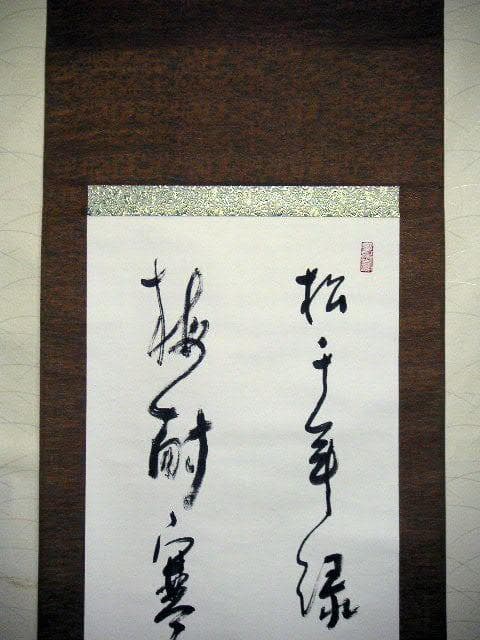 松千年緑
梅耐寒